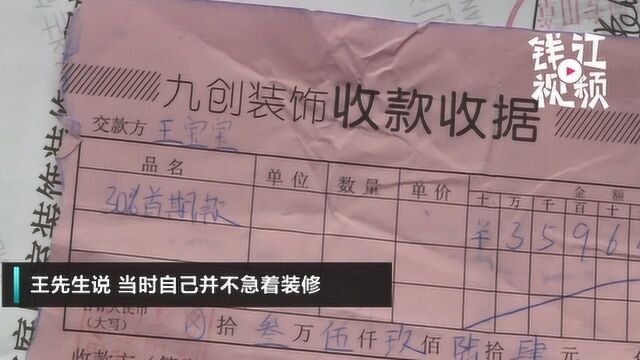 钱江
视频
九创装饰收款收据
交款方 王宝宝
品名 单位 数量 单价 金额
十万千百十
30%首期款 ¥3596
王先生说 当时自己并不急着装修
合计人民币
(大写) ⊗拾叁万伍仟玖佰陆拾肆元
收款方